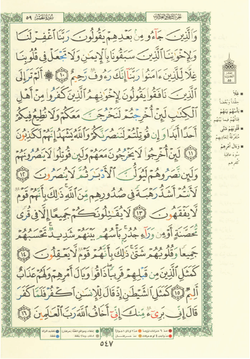 ٥٩
وَٱلَّذِينَ جَآءُو مِنۢ بَعْدِهِمْ يَقُولُونَ رَبَّنَا ٱغْفِرْ لَنَا
وَلِإِخْوَٰنِنَا ٱلَّذِينَ سَبَقُونَا بِٱلْإِيمَٰنِ وَلَا تَجْعَلْ فِى قُلُوبِنَا
غِلًّا لِّلَّذِينَ ءَامَنُوا۟ رَبَّنَآ إِنَّكَ رَءُوفٌ رَّحِيمٌ ١٠ ۞ أَلَمْ تَرَ إِلَى
ٱلَّذِينَ نَافَقُوا۟ يَقُولُونَ لِإِخْوَٰنِهِمُ ٱلَّذِينَ كَفَرُوا۟ مِنْ أَهْلِ
ٱلْكِتَٰبِ لَئِنْ أُخْرِجْتُمْ لَنَخْرُجَنَّ مَعَكُمْ وَلَا نُطِيعُ فِيكُمْ
أَحَدًا أَبَدًا وَإِن قُوتِلْتُمْ لَنَنصُرَنَّكُمْ وَٱللَّهُ يَشْهَدُ إِنَّهُمْ لَكَٰذِبُونَ
١١ لَئِنْ أُخْرِجُوا۟ لَا يَخْرُجُونَ مَعَهُمْ وَلَئِن قُوتِلُوا۟ لَا يَنصُرُونَهُمْ
وَلَئِن نَّصَرُوهُمْ لَيُوَلُّنَّ ٱلْأَدْبَٰرَ ثُمَّ لَا يُنصَرُونَ ١٢
لَأَنتُمْ أَشَدُّ رَهْبَةً فِى صُدُورِهِم مِّنَ ٱللَّهِ ذَٰلِكَ بِأَنَّهُمْ قَوْمٌ
لَّا يَفْقَهُونَ ١٣ لَا يُقَٰتِلُونَكُمْ جَمِيعًا إِلَّا فِى قُرًى
مُّحَصَّنَةٍ أَوْ مِن وَرَآءِ جُدُرٍۭ بَأْسُهُم بَيْنَهُمْ شَدِيدٌ تَحْسَبُهُمْ
جَمِيعًا وَقُلُوبُهُمْ شَتَّىٰ ذَٰلِكَ بِأَنَّهُمْ قَوْمٌ لَّا يَعْقِلُونَ ١٤
كَمَثَلِ ٱلَّذِينَ مِن قَبْلِهِمْ قَرِيبًا ذَاقُوا۟ وَبَالَ أَمْرِهِمْ وَلَهُمْ عَذَابٌ
أَلِيمٌ ١٥ كَمَثَلِ ٱلشَّيْطَٰنِ إِذْ قَالَ لِلْإِنسَٰنِ ٱكْفُرْ فَلَمَّا كَفَرَ
قَالَ إِنِّى بَرِىٓءٌ مِّنكَ إِنِّىٓ أَخَافُ ٱللَّهَ رَبَّ ٱلْعَٰلَمِينَ ١٦
٥٤٧